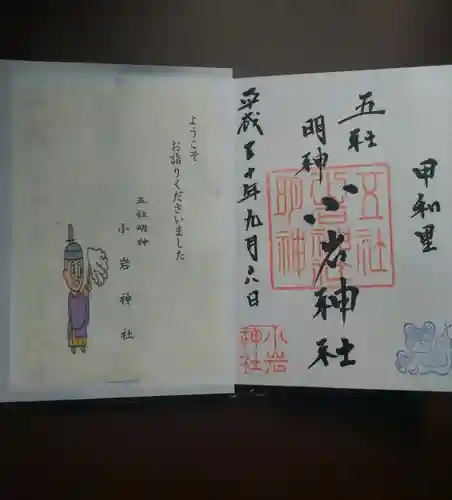 甲和里
五社
明神
小岩神社
平成三十年九月六日
五社
小岩神社
明神
小岩
神社
ようこそ
お詣りくださいました
五社明神
小岩神社